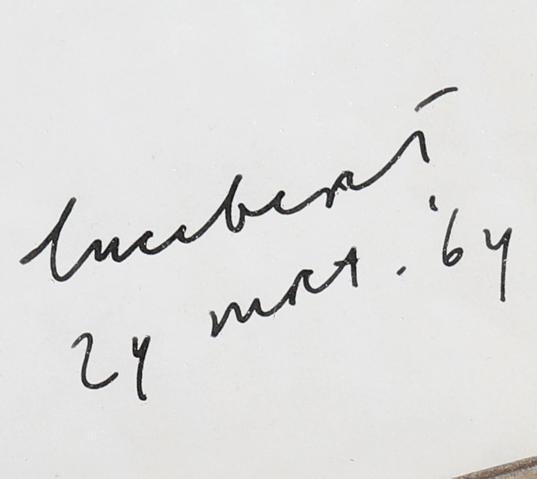 lucebert
24 mrt. '64